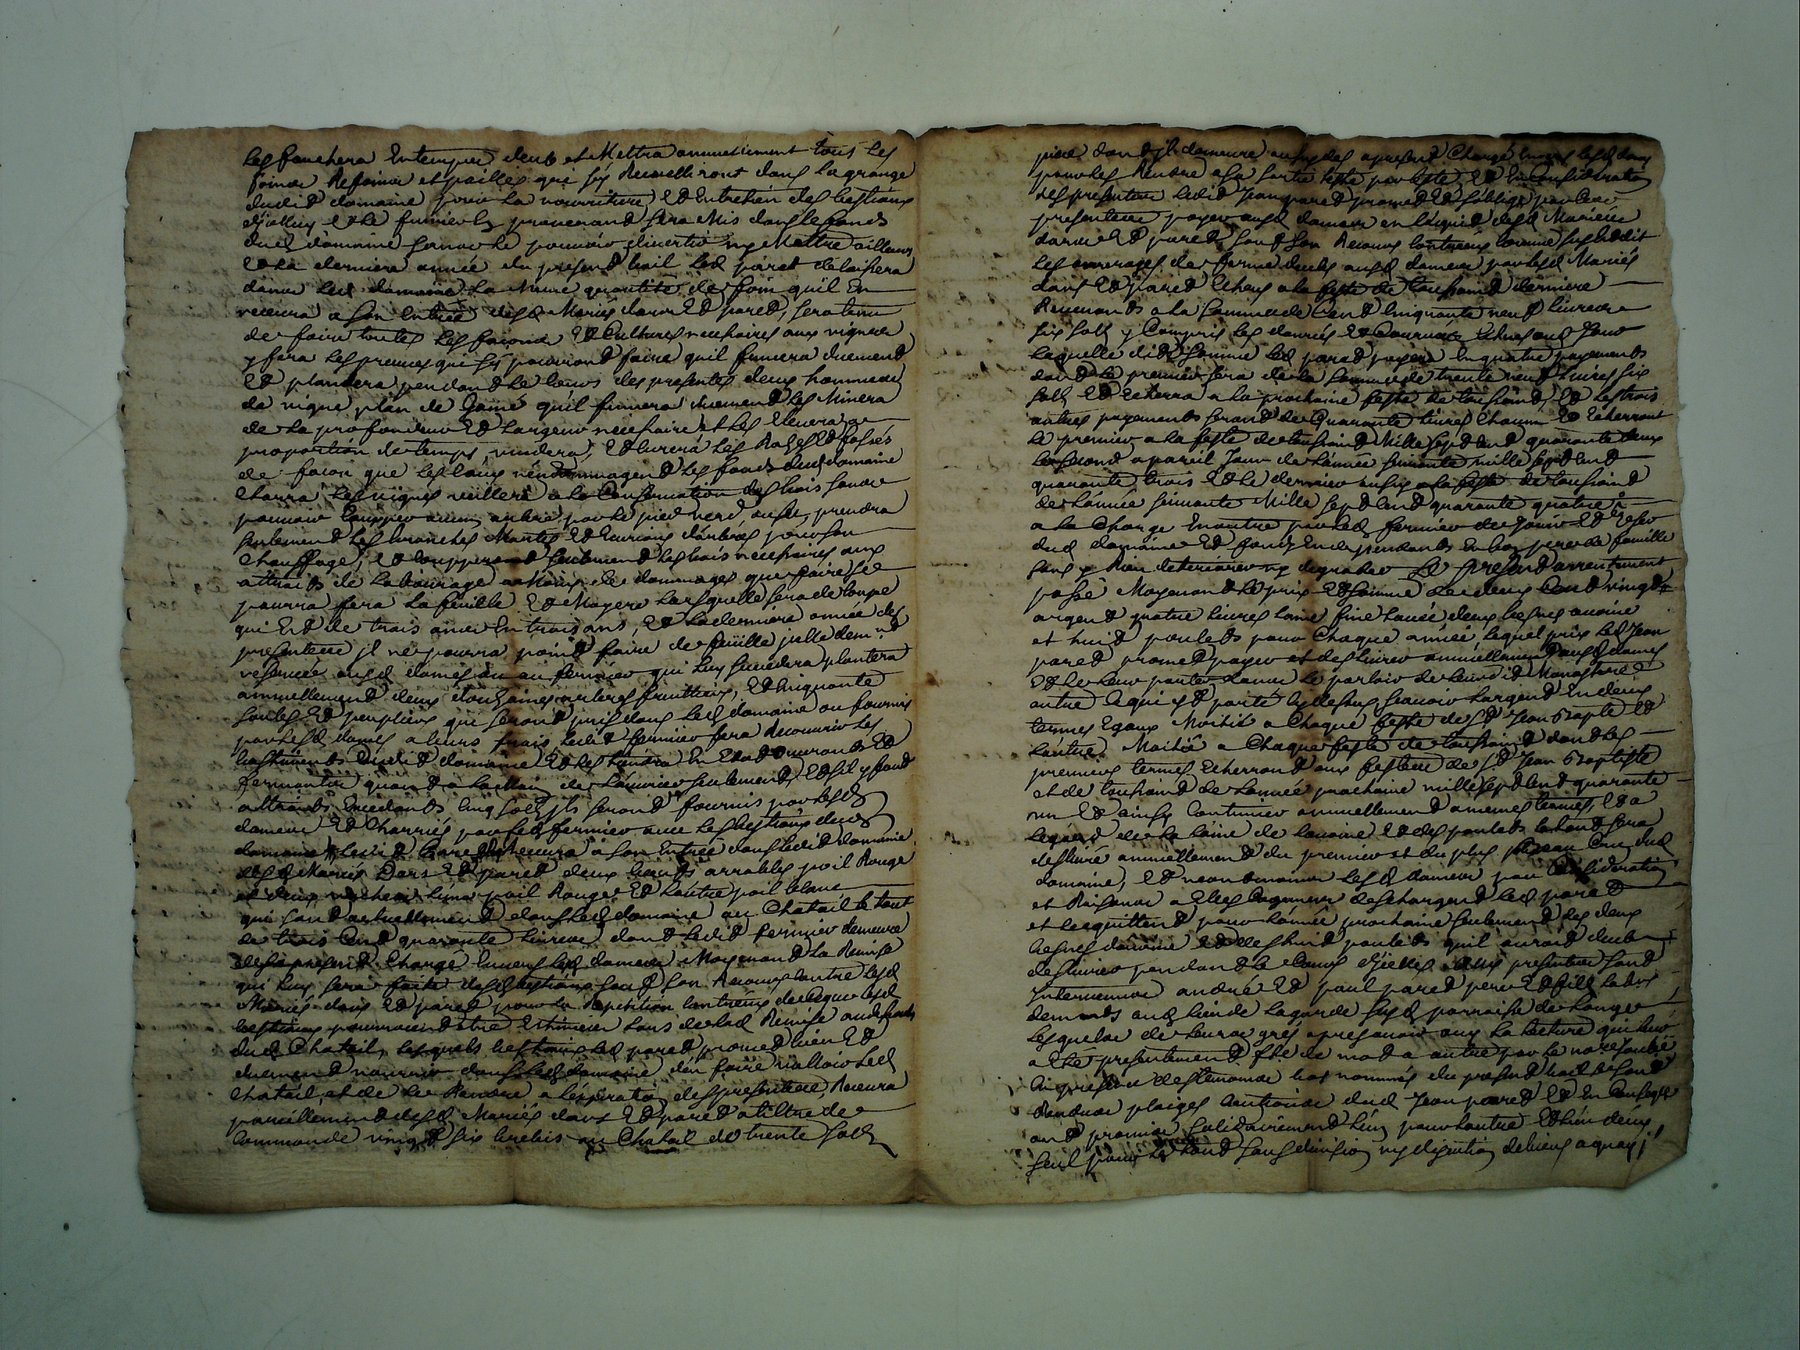 les fauchera en temps deub et Mettra annuellement tous les
foins Refoins et pailles qui sy Recueilliront dans la grange
dudit domaine pour la nourriture Et Entretien des bestiaux
d'jcelluy Et le fumier en provenand sera Mis dans le fonds
dud domaine sans le pouvoir divertir ny Mettre ailleurs
Et la derniere année du presend bail led paret delaissera
dans led domaine la Meme quantité de foin quil En
recevra a son Entrée desd Mariés dars Et pared, sera tenu
de faire toutes les façons Et Cultures necessaires aux vignes
y fera les preuves qui sis pourrond faire quil fumera duemend
Et plantera pendand le Cours des presentes deux hommées
de vigne plan de Gamé qu'il fumera duemend les Minera
de la profondeur Et largeur necessaire et les Elevera a
proportion de temps, vuidera, Et curera les Rases Et fossés
de façon que les Eaux n'endommagend les fonds dud domaine
veillera a la Conservation des bois sans
pouvoir Coupper aucun arbre par le pied verd, ou sec, prendra
seulemend les branches Mortes Et Emions d'arbres pour son
Chauffage, Et Coupperand seulemend les bois necessaires aux
attraits de labourage a Moins de dommages que faire se
pourra fera la feuille Et Mayere Lesquelle sera de Coupe
qui End de trois années En trois ans, Et la derniere année des
presentes jl ne pourra poind faire de feüille jcelle demt
reservée ausd dames ou au fermier qui luy succedera plantera
annuellemend deux douzaines arbres fruittiers, Et Cinquante
saules Et peupliers qui serond pris dans led domaine ou fournis
par lesd dames a leurs frais, ledit fermier fera Recouvrir les
bastiments dudit domaine Et les tiendra En Etat ouvrands Et
fermands quand a la Main de l'ouvrier seulemend, Et sil y faud
attraits Excedants Cinq sols jls serond fournis par lesd
dames Et Charriés par led fermier avec les bestiaux dud
domaine, Ledit paret Recevra a son Entrée dans ledit domaine
desd Mariés Dars Et pared deux boeufs arrables poil Rouge
et deux vaches lune poil Rouge Et lautre poil blanc
qui sond actuellemend dans led domaine au Chatail le tout
de trois Cend quarante livres dond ledit fermier demeure
des apresend Chargé Envers lesd dames Moyenand la Remise
qui luy sera faite desd bestiaux sauf son Recours Contre lesd
Mariés dars Et pared pour la Repetition Contreux de Ce que lesd
bestiaux pourroiend etre Estimées lors de lad Remise au dessous
dud Chatail, lesquels bestiaux led pared promed bien Et
duemend nourrir dans led domaine d'en faire valloir led
Chatail, et de le Rendre a l'expiration des presentes, Recevra
pareillemend desd Mariés dars Et pared a tiltre de
Commande vingt six brebis au Chatail de trente sols
piece dond jl demeure aussy des apresend Chargé Envers lesd dames
pour les Rendre a la sortie teste par teste, Et En Consideration
des presentes ledit Jean pared promed Et s'oblige par Ces
presentes payer ausd dames En l'aquit desd Mariés
dars Et pared sauf son Recours Contreux Comme sus est dit
les arrerages de ferme deubs ausd dames par lesd Mariés
dars Et pared Echeus a la feste de toussaint derniere
Revenants a la somme de Cend Cinquante neuf livres
six sols y Compris les denrées Echeus aud Jour
laquelle dite somme led pared payera En quatre payements
dond le premier sera de la somme de trente neuf livres six
sols Et Echerra a la prochaine feste de toussaint, Et les trois
autres payements serond de quarante livres Chacun Et Echerront
le premier a la feste de toussaint Mille sept Cend quarante deux
le second a pareil Jour de l'année suivante mille sept Cend
quarante trois Et le dernier aussy a la feste de toussaint
de l'année suivante Mille sept Cend quarante quatre
a la Charge Enoutre par led fermier de Jouir Et User
dud domaine Et fonds En dependants En bon pere de famille
sans y Rien deteriorer ny degrader Le presend arrentement
passé Moyenand le prix Et somme de deux Cend vingt
argend quatre livres laine fine lavée deux besnes avoine
et huit poulets pour Chaque année lequel prix led Jean
pared promed payer et deslivrer annuellemend ausd dames
Et le leur porter dans le parloir de leurdit Monastere
outre Ce qui est porté Cy dessus scavoir l'argend En deux
termes Egaux Moitié a Chaque feste de St Jean Baptte Et
l'autre Moitié a Chaque feste de toussaint dond les
premiers termes Echerrond aux festes de St Jean Baptiste
et de toussand de l'année prochaine mille sept Cend quarante
un Et ainsy Continuer annuellemend a memes termes, Et a
legard de la laine de lavoine Et des poulets le tout sera
deslivré annuellemend du premier et du plus beau Cru dud
domaine, Et neantmoins lesd dames pour Consideration
et Raisons a Elles Connues deschargend led pared
et lequittend pour l'année prochaine seulemend des deux
besnes d'avoine Et des huid poulets quil aurait deub
deslivrer pendand le Cours d'jcelle. Aux presentes sond
Intervenus andré Et paul pared pere Et fils labrs
demts aud lieu de lagarde susd parroisse de
lesquels de leurs grés apres avoir eu la lecture qui leur
a Eté presentement fte de mot a autre par le nore soussé
En presence des temoins bas nommés du presend bail se sont
Rendus pleiges Cautions dud Jean pared Et En Consequence
ond promis solidairemend l'un pour lautre Et l'un deux
seul pour le tout sans division ny discution de biens a quoy